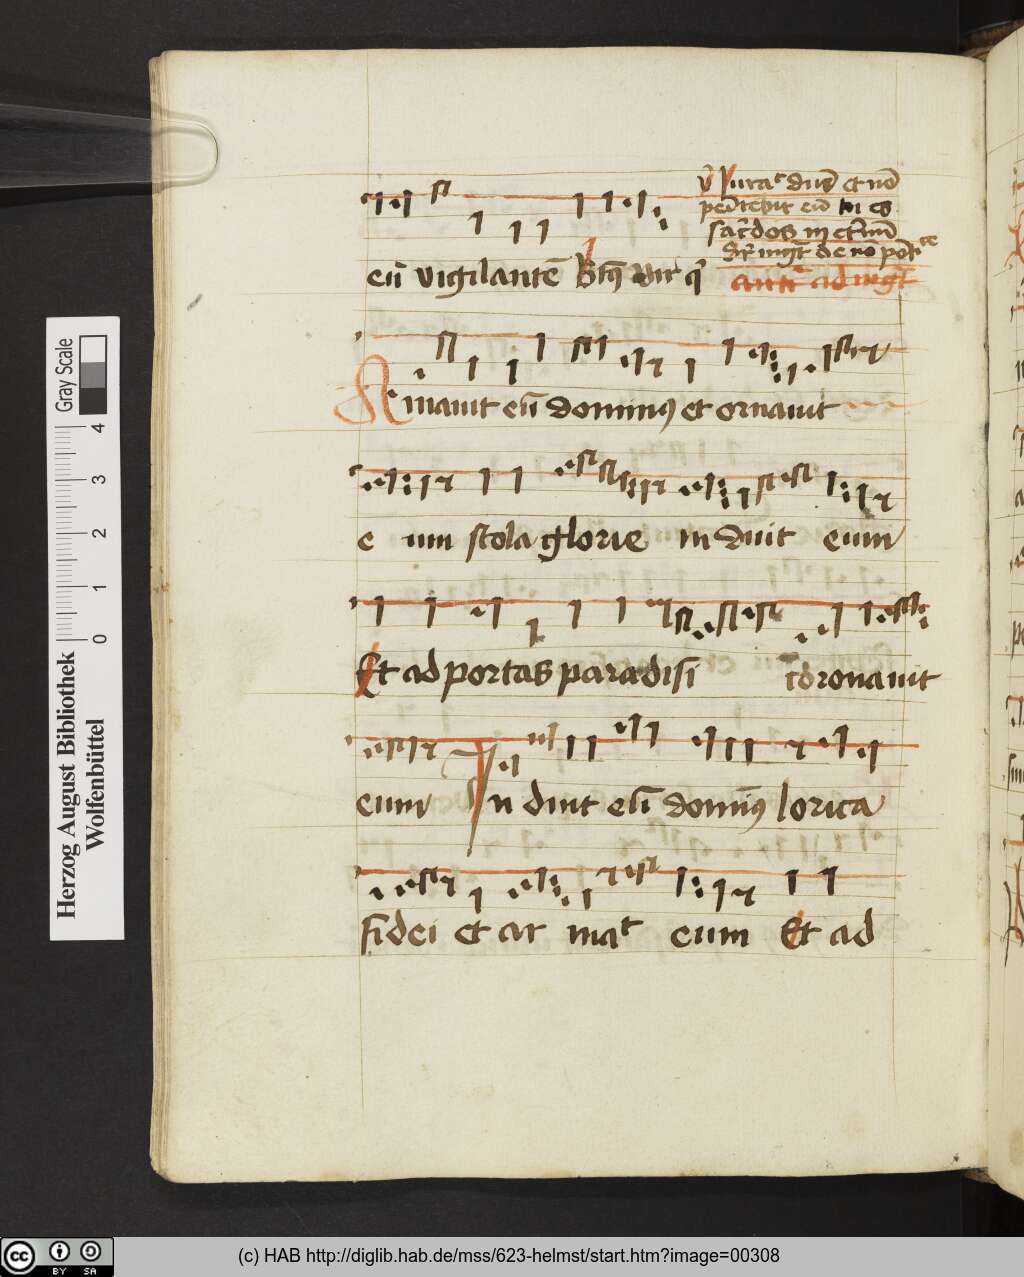 v̄ Iurat͛ dn̄s et nō
penitebit eū tu es
sacerdos in etnū
ad
eū vigilantē Btꝰ vir qͥ
Amauit eū dominꝰ et ornauit
e um stola glorie in duit eum
Et ad portas paradisi coronauit
eum In duit eū dominꝰ lorica
fidei et ar mat͛ eum Et ad
Herzog August Bibliothek
Wolfenbüttel
Gray Scale
0 1 2 3 4
cc BY SA
(c) HAB http://diglib.hab.de/mss/623-helmst/start.htm?image=00308